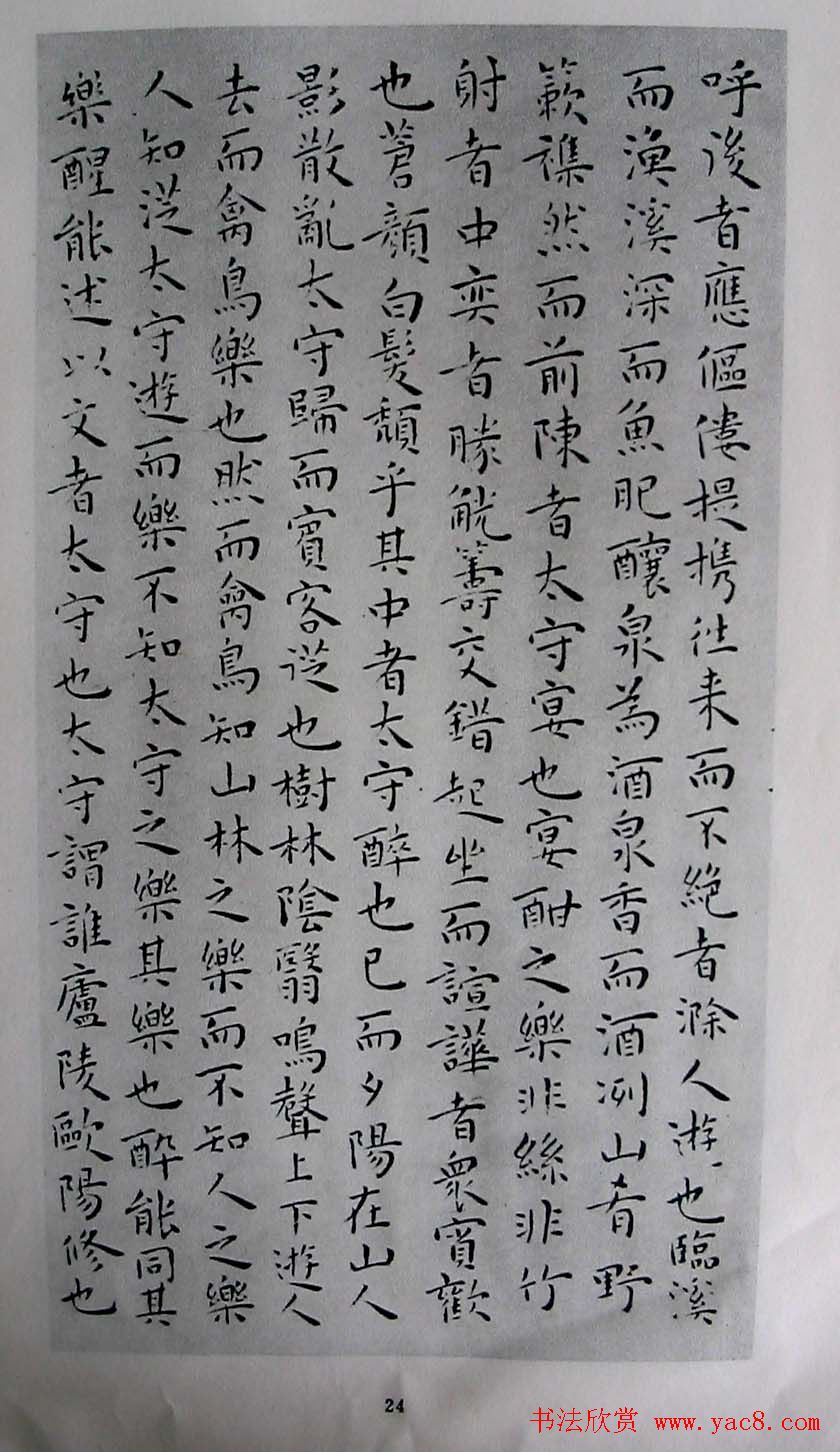 呼後者應傴僂提携往来而不絶者滁人遊也臨溪
而漁溪深而魚肥釀泉為酒泉香而酒洌山肴野
蔌襍然而前陳者太守宴也宴酣之樂非絲非竹
射者中奕者勝觥籌交錯起坐而諠譁者衆賓歡
也蒼顔白髮頽乎其中者太守醉也已而夕陽在山人
影散亂太守歸而賓客従也樹林陰翳鳴聲上下遊人
去而禽鳥樂也然而禽鳥知山林之樂而不知人之樂
人知従太守遊而樂不知太守之樂其樂也醉能同其
樂醒能述以文者太守也太守謂誰廬陵歐陽修也
24
书法欣赏 www.yac8.com